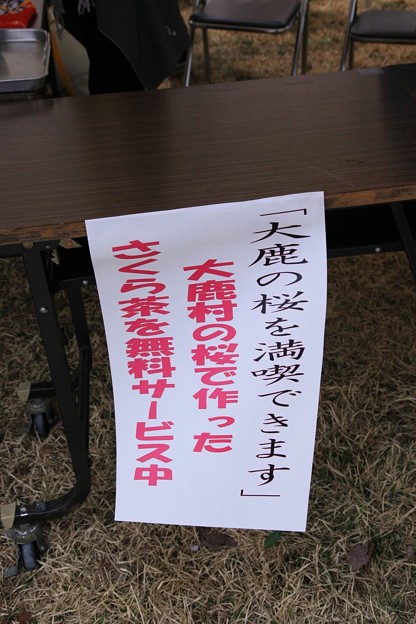 「大鹿の桜を満喫できます」
大鹿村の桜で作った
さくら茶を無料サービス中